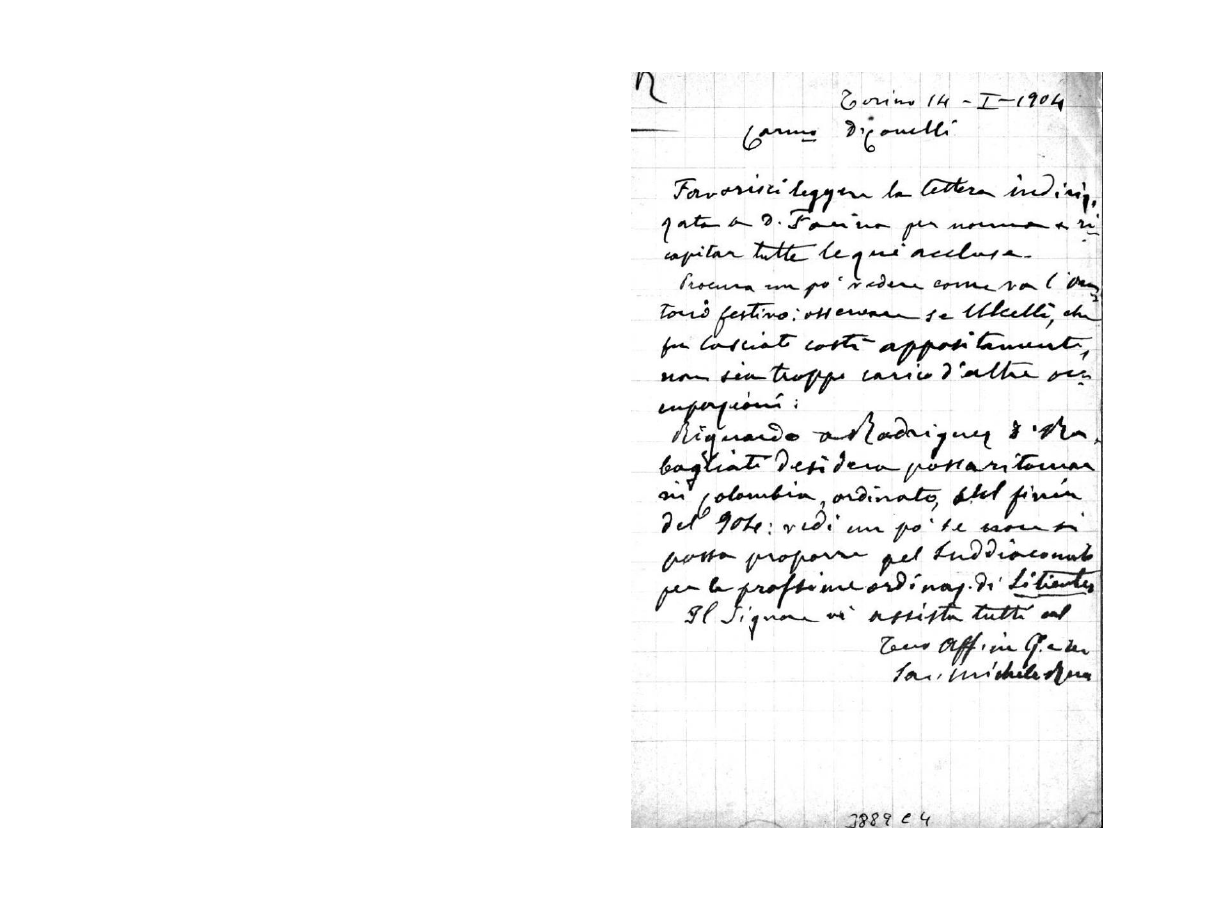 Torino 14 - I - 1904
Carmo D. Conelli
Favorisci leggere la lettera indiriz,
zata a D. Farina per norma a ri
capitar tutte le qui accluse.
Procura un po' vedere come va l'ora
torio festivo: osservare se Ulcelli, che
fu lasciato costì appositamente,
non sia troppo carico d'altre occ
cupazioni:
Riguardo a Rodriguez D. Ra,
bagliati desidera possa ritornar
in Colombia, ordinato, sul finir
del 904: vedi un po' se non si
possa proporre pel Suddiaconato
per le prossime ordinaz. di Sitientes
Il Signore vi assista tutti ed
Tuo Aff. in G. e M.
Sac. Michele Rua
3889 C 4